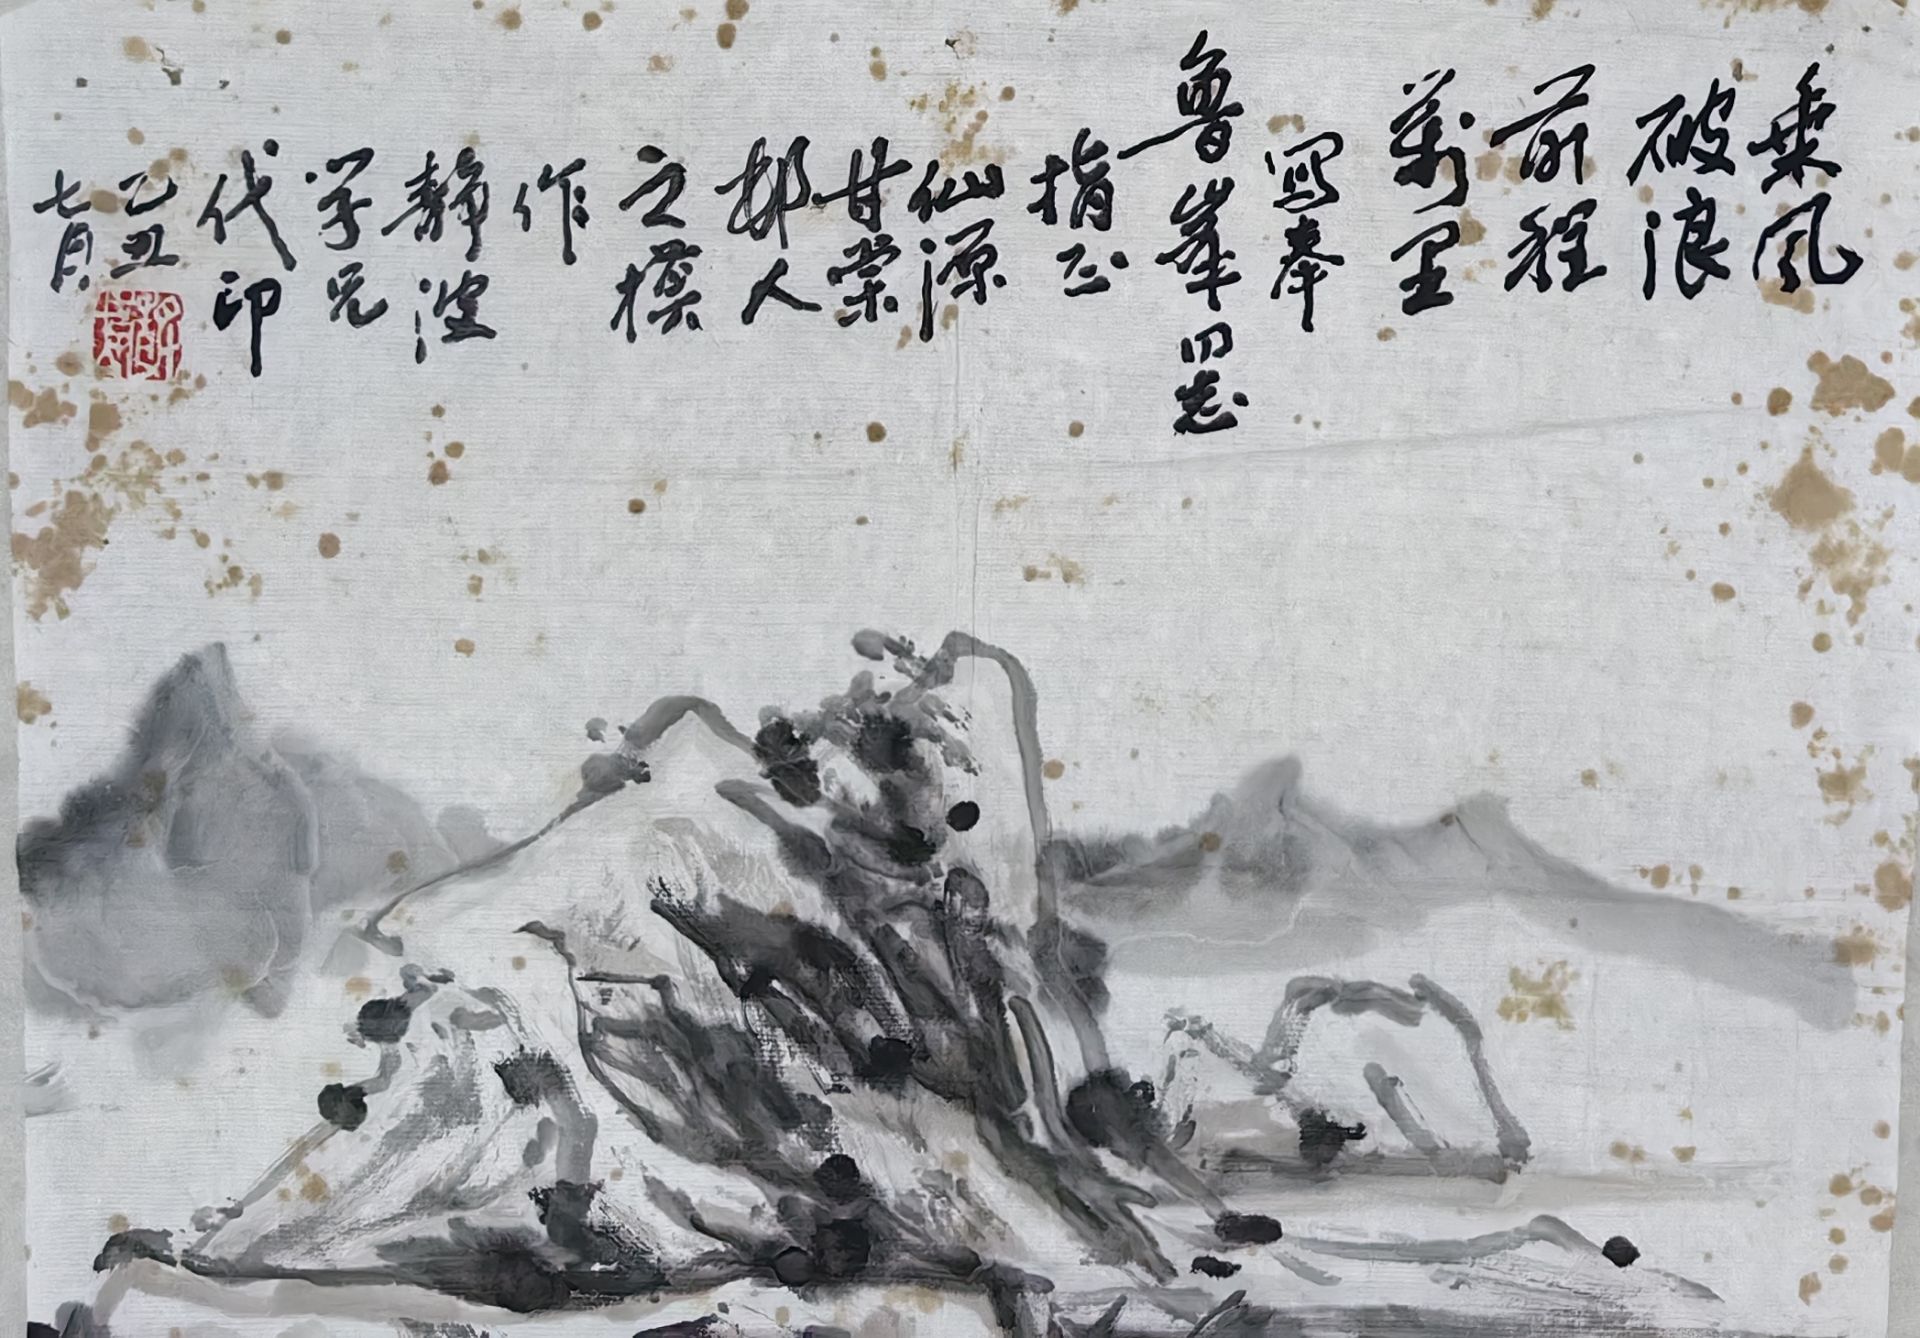 乘风
破浪
前程
萬里
寫奉
魯峯同志
指正
仙源
甘棠
邨人
之模
作
静波
学兄
代印
乙丑
七月